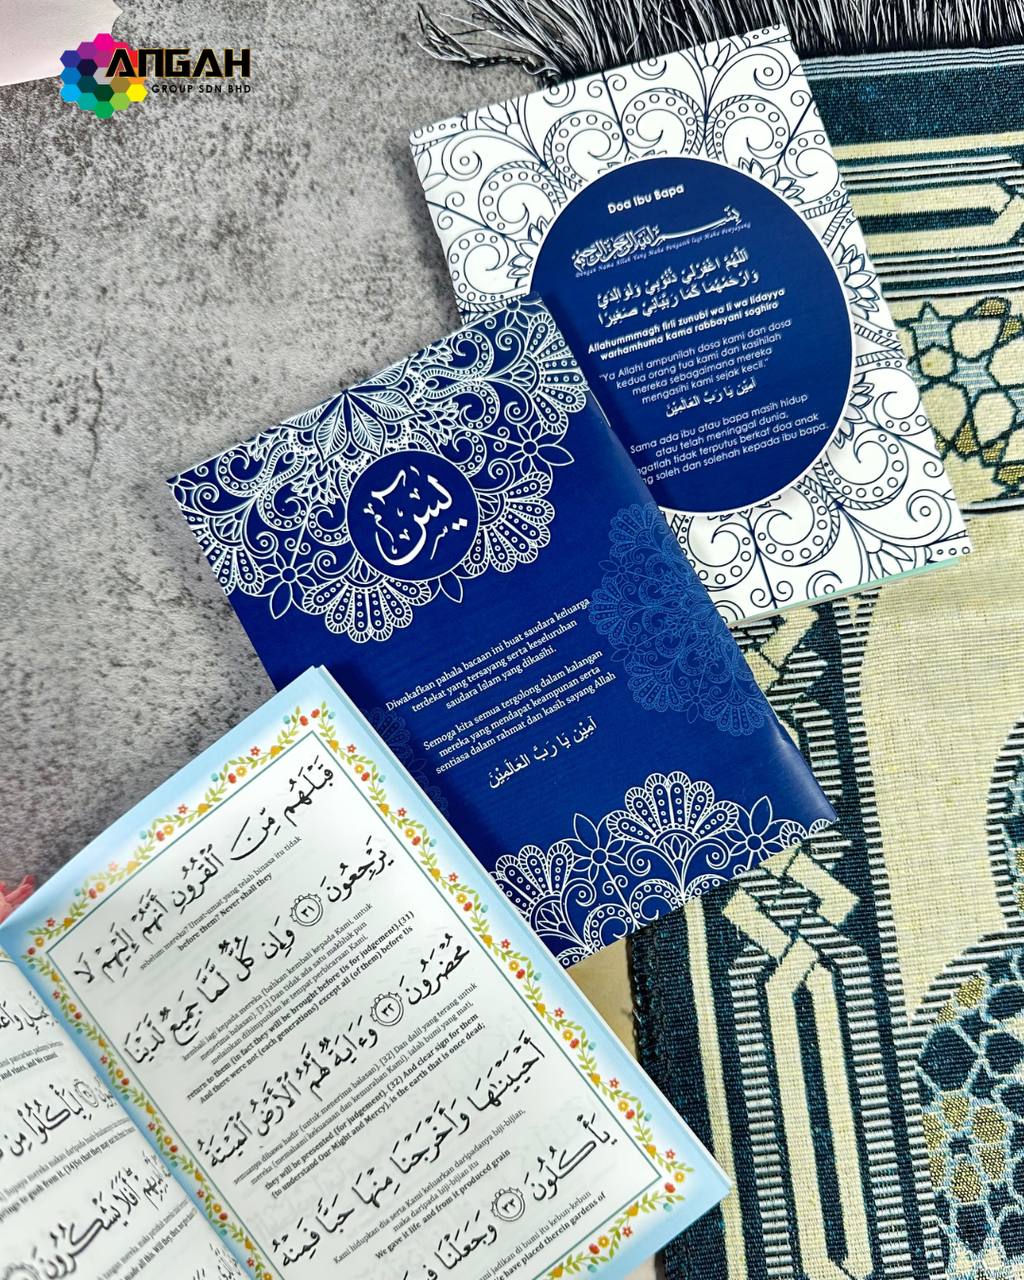 ANGAH
GROUP SDN BHD
Doa Ibu Bapa
بِسْمِ اللَّهِ الرَّحْمَٰنِ الرَّحِيمِ
Dengan Nama Allah Yang Maha Pengasih lagi Maha Penyayang
اَللّٰهُمَّ اغْفِرْلِيْ ذُنُوْبِيْ وَلِوَالِدَيَّ
وَارْحَمْهُمَا كَمَا رَبَّيَانِيْ صَغِيْرًا
Allahummmagh firli zunubi wa li wa lidayya
warhamhuma kama rabbayani soghiro
"Ya Allah! ampunilah dosa kami dan dosa
kedua orang tua kami dan kasihilah
mereka sebagaimana mereka
mengasihi kami sejak kecil."
آمِيْن يَا رَبَّ الْعَالَمِيْنَ
Sama ada ibu atau bapa masih hidup
atau telah meninggal dunia,
tidak terputus berkat doa anak
soleh dan solehah kepada ibu bapa.
يس
Diwakafkan pahala bacaan ini buat saudara keluarga
terdekat yang tersayang serta keseluruhan
saudara Islam yang dikasihi.
Semoga kita semua tergolong dalam kalangan
mereka yang mendapat keampunan serta
sentiasa dalam rahmat dan kasih sayang Allah
آمِيْن يَا رَبَّ الْعَالَمِيْنَ
قَبْلَهُم مِّنَ ٱلْقُرُونِ أَنَّهُمْ إِلَيْهِمْ لَا
sebelum mereka? Umat-umat yang telah binasa itu tidak
before them? Never shall they
يَرْجِعُونَ ٣١ وَإِن كُلٌّ لَّمَّا جَمِيعٌ لَّدَيْنَا
kembali lagi kepada mereka (bahkan kembali kepada Kami, untuk
menerima balasan). [31] Dan tidak ada satu makhluk pun
melainkan dihimpunkan ke tempat perbicaraan Kami.
return to them (in fact they will be brought before Us for judgement).(31)
And there were not (each generations) except all (of them) before Us
مُحْضَرُونَ ٣٢ وَءَايَةٌ لَّهُمُ ٱلْأَرْضُ ٱلْمَيْتَةُ
semuanya dibawa hadir (untuk menerima balasan). [32] Dan dalil yang terang untuk
mereka (memahami kekuasaan dan kemurahan Kami), ialah bumi yang mati,
they will be presented (for judgement).(32) And clear sign for them
(to understand Our Might and Mercy), is the earth that is once dead;
أَحْيَيْنَٰهَا وَأَخْرَجْنَا مِنْهَا حَبًّا فَمِنْهُ
Kami hidupkan dia serta Kami keluarkan daripadanya biji-bijian,
maka daripada biji-bijian itu
We gave it life and from it produced grain
يَأْكُلُونَ ٣٣ وَجَعَلْنَا
jadikan di bumi itu kebun-kebun
have placed therein gardens of
لِيَأْكُلُوا۟ مِن
أَفَلَا يَشْكُرُونَ